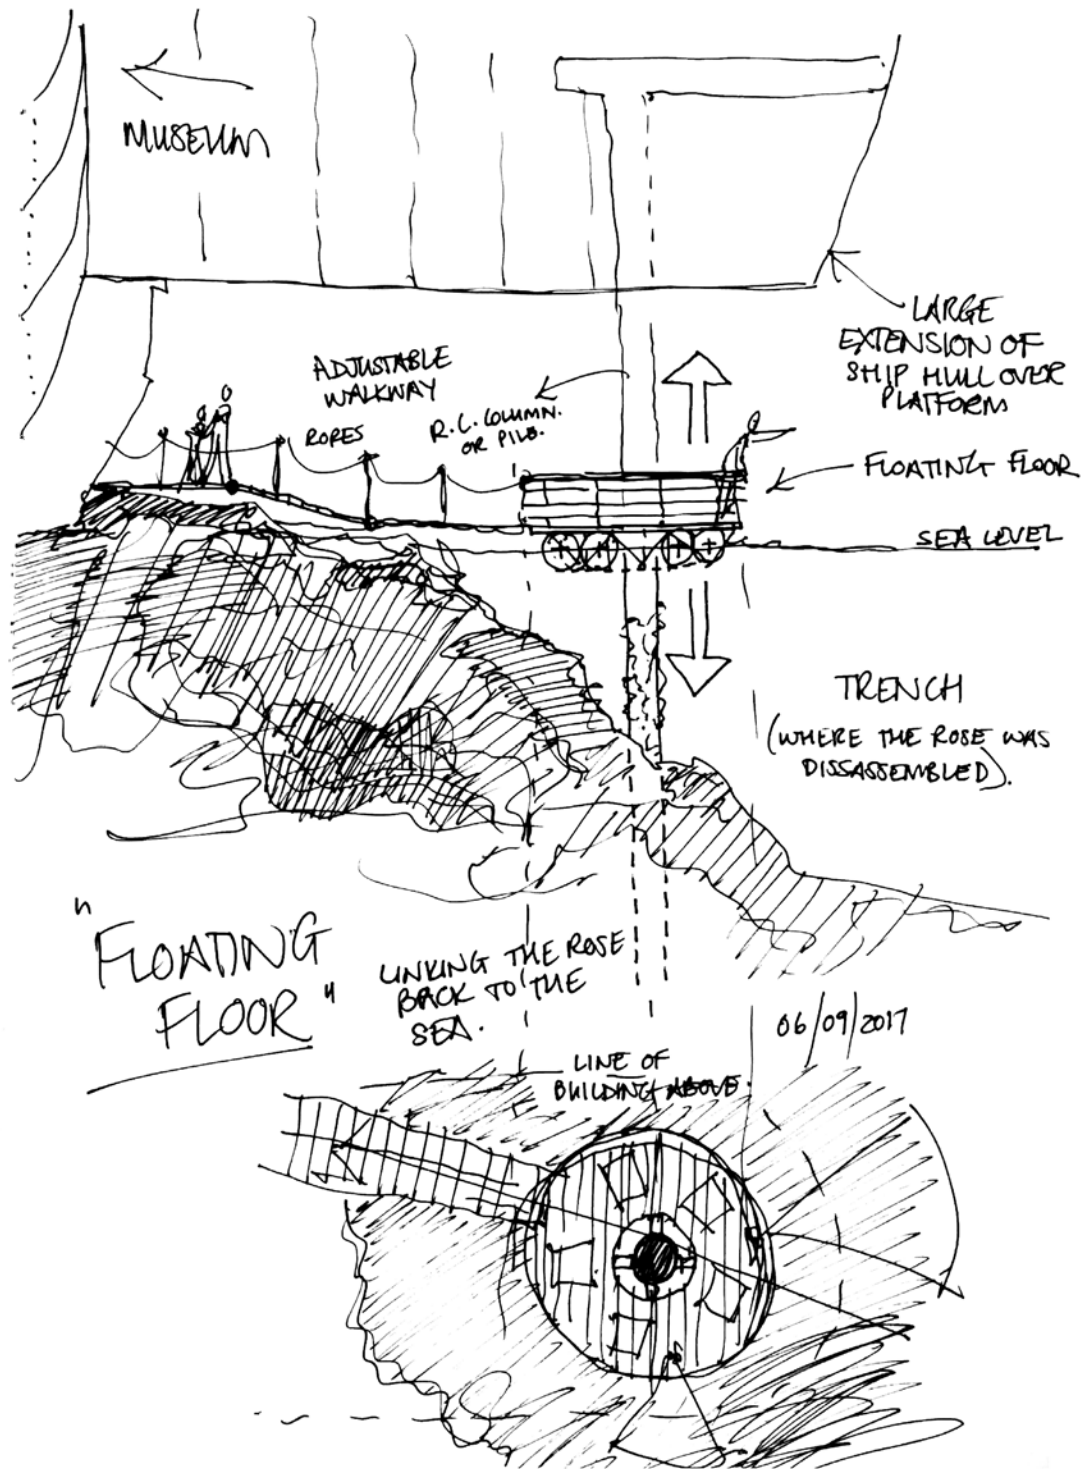 MUSEUM
LARGE
EXTENSION OF
SHIP HULL OVER
PLATFORM
ADJUSTABLE
WALKWAY
ROPES
R.C. COLUMN.
OR PILE.
FLOATING FLOOR
SEA LEVEL
TRENCH
(WHERE THE ROSE WAS
DISSASSEMBLED).
"FLOATING
FLOOR"
LINKING THE ROSE
BACK TO THE
SEA.
06/09/2017
LINE OF
BUILDING ABOVE.